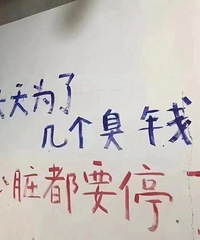 天天为了
几个臭钱
心脏都要停